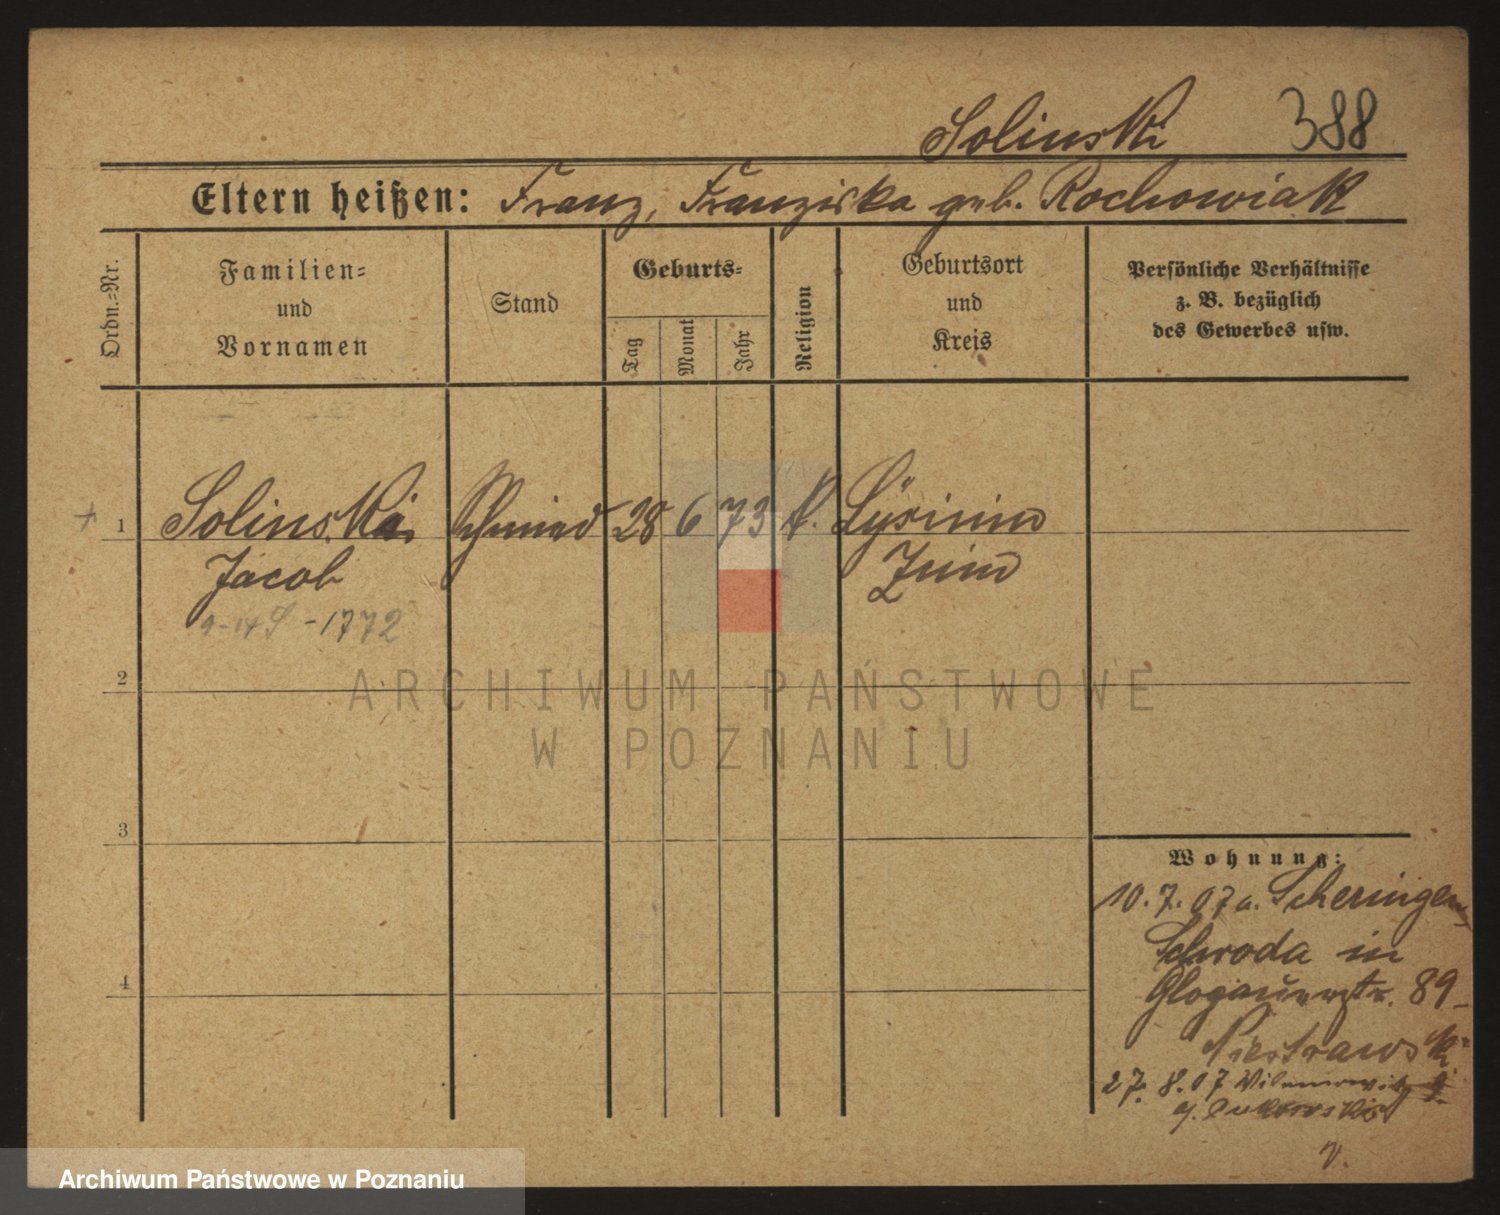 Solinski 388
Eltern heißen: Franz, Franziska geb. Rochowiak
Ordn.=Nr.
Familien=
und
Vornamen
Stand
Geburts=
Tag
Monat
Jahr
Religion
Geburtsort
und
Kreis
Persönliche Verhältnisse
z. B. bezüglich
des Gewerbes usw.
+ 1 Solinski Schmied 28 6 73 k. Lysinin
Jacob Znin
-1772
2
ARCHIWUM PAŃSTWOWE
W POZNANIU
3
4
Wohnung:
10.7.07 a. Scheringen
Schroda in
Glogauerstr. 89
27.8.07
Archiwum Państwowe w Poznaniu